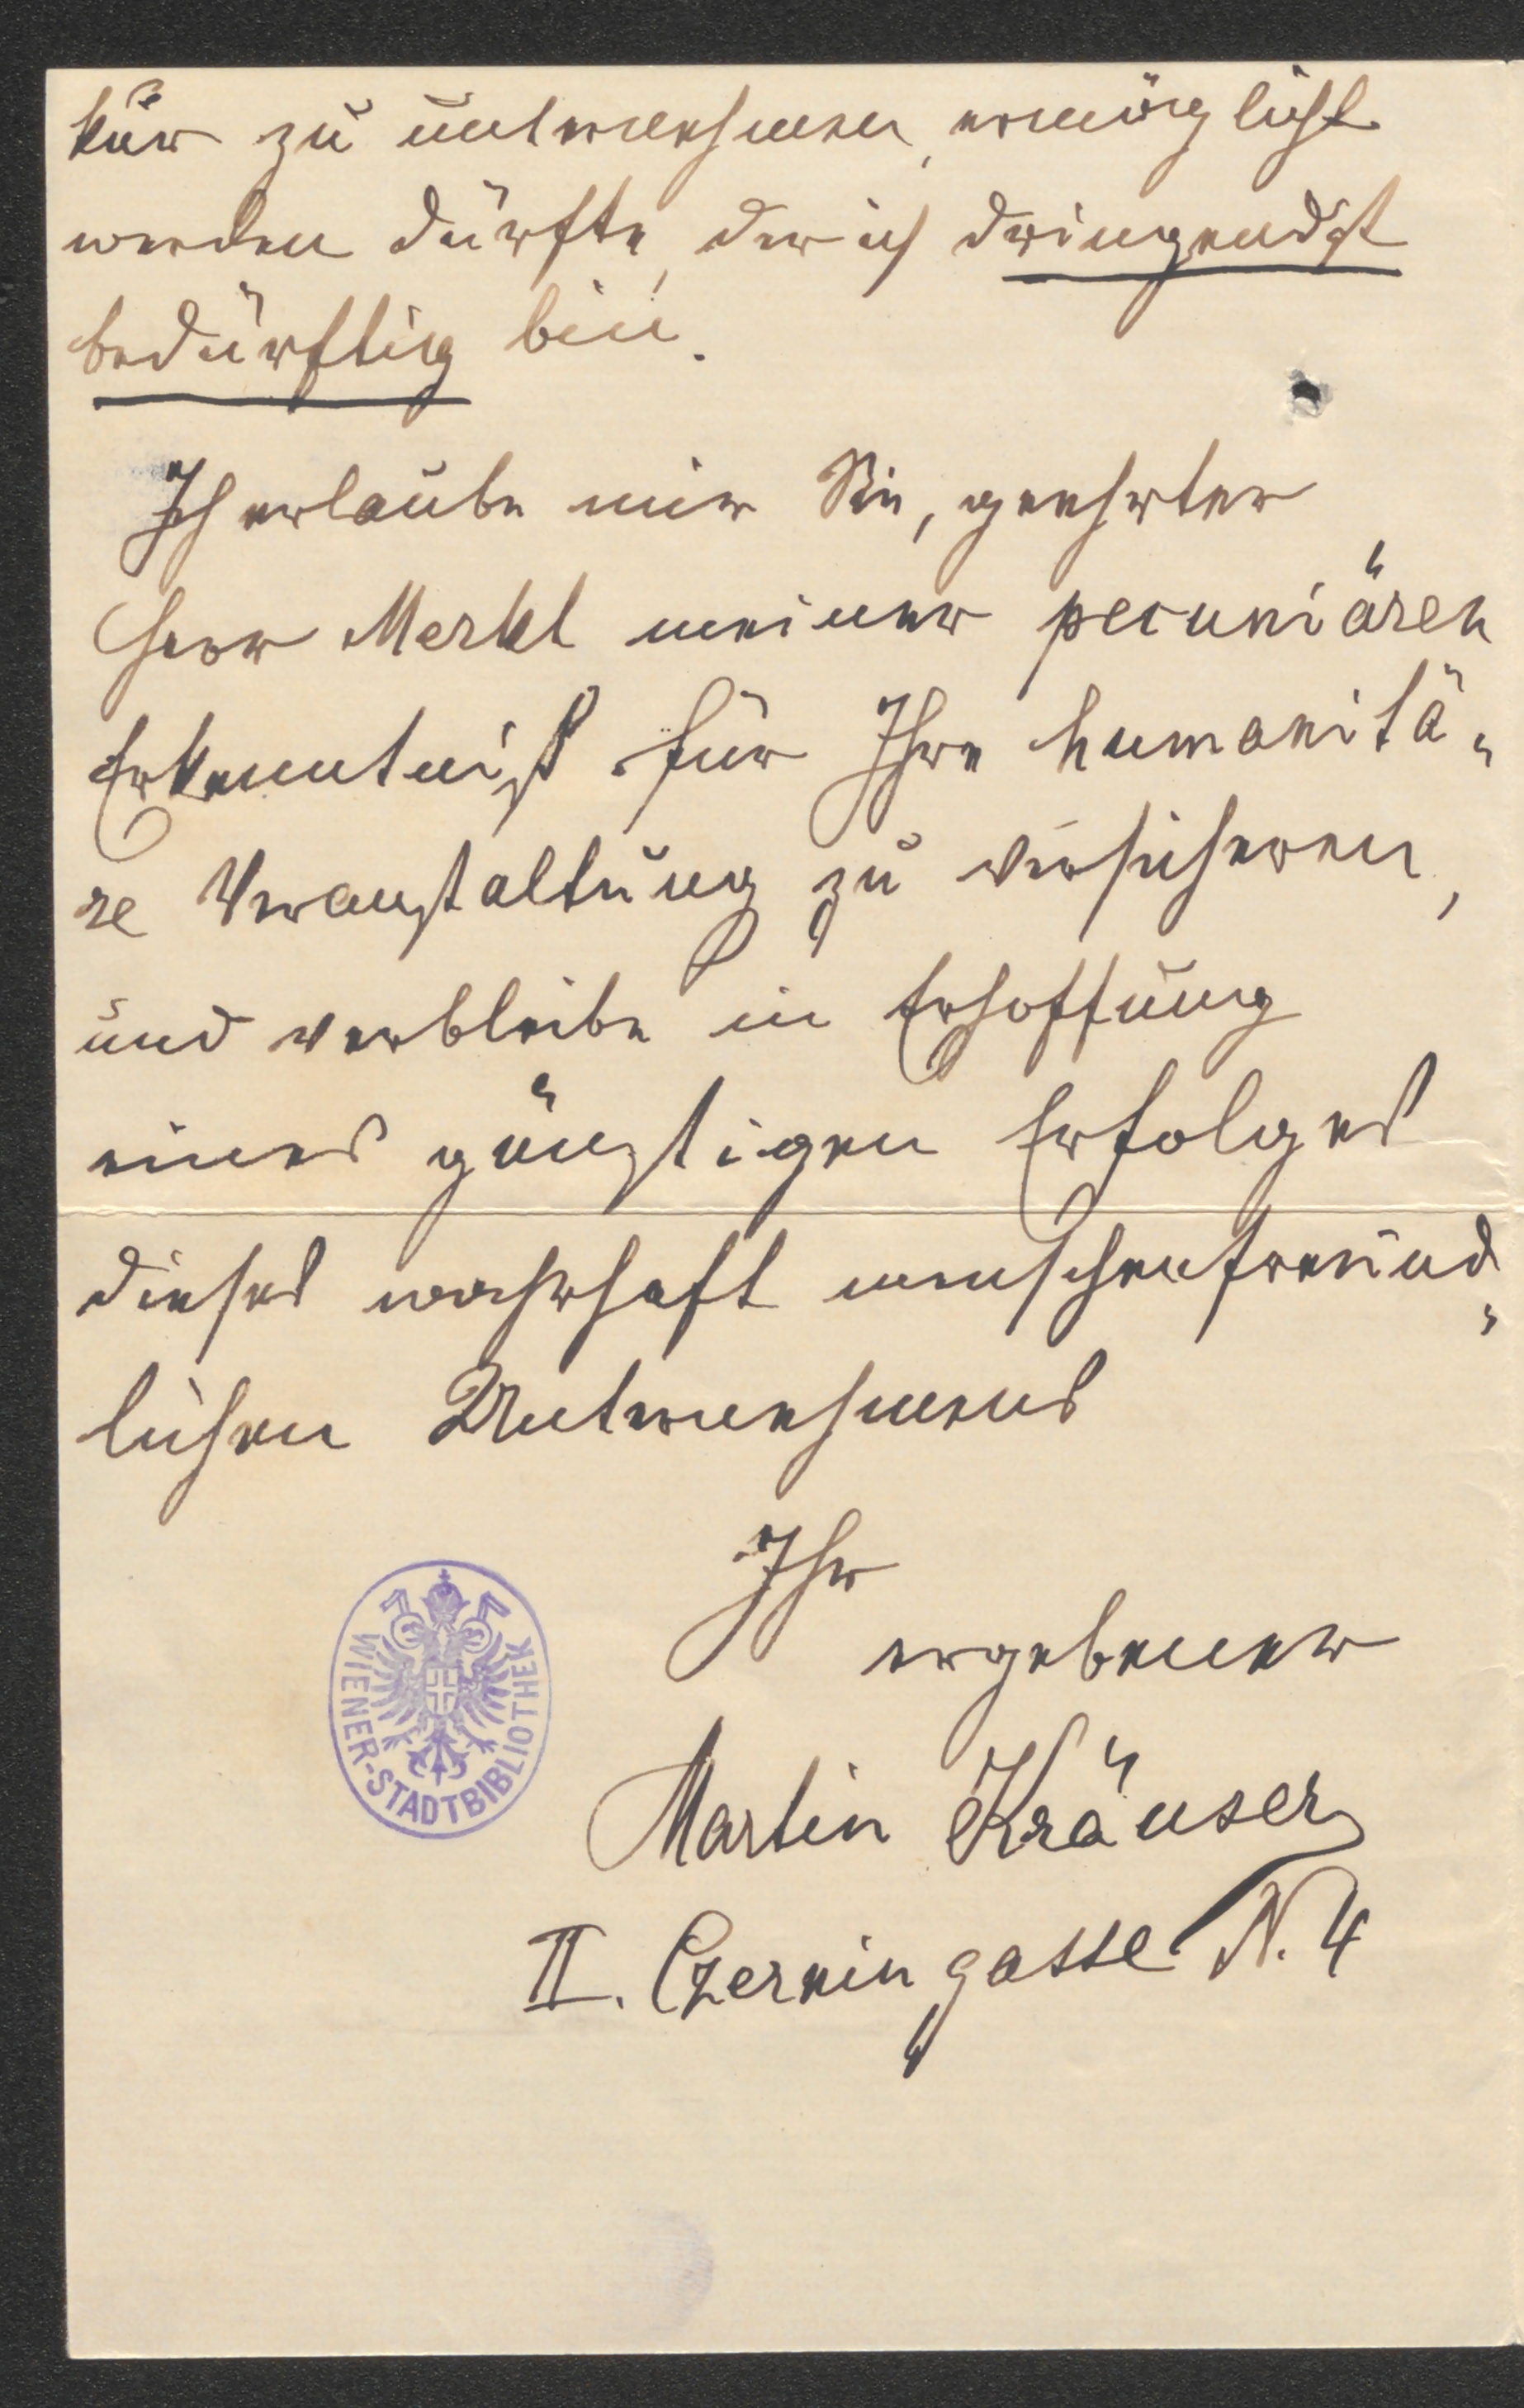 kur zu unternehmen, ermöglicht
werden dürfte, der ich dringendst
bedürftig bin.
Ich erlaube mir Sie, geehrter
Herr Merkl meiner pecuniären
Erkenntniß für Ihre humanitä„
re Veranstaltung zu versicheren,
und verbleibe in Erhoffung
eines günstigen Erfolges
dieses wahrhaft menschenfreund„
lichen Unternehmens
Ihr
ergebener
Martin Kräuser
II. Czerningasse N. 4
WIENER-STADTBIBLIOTHEK